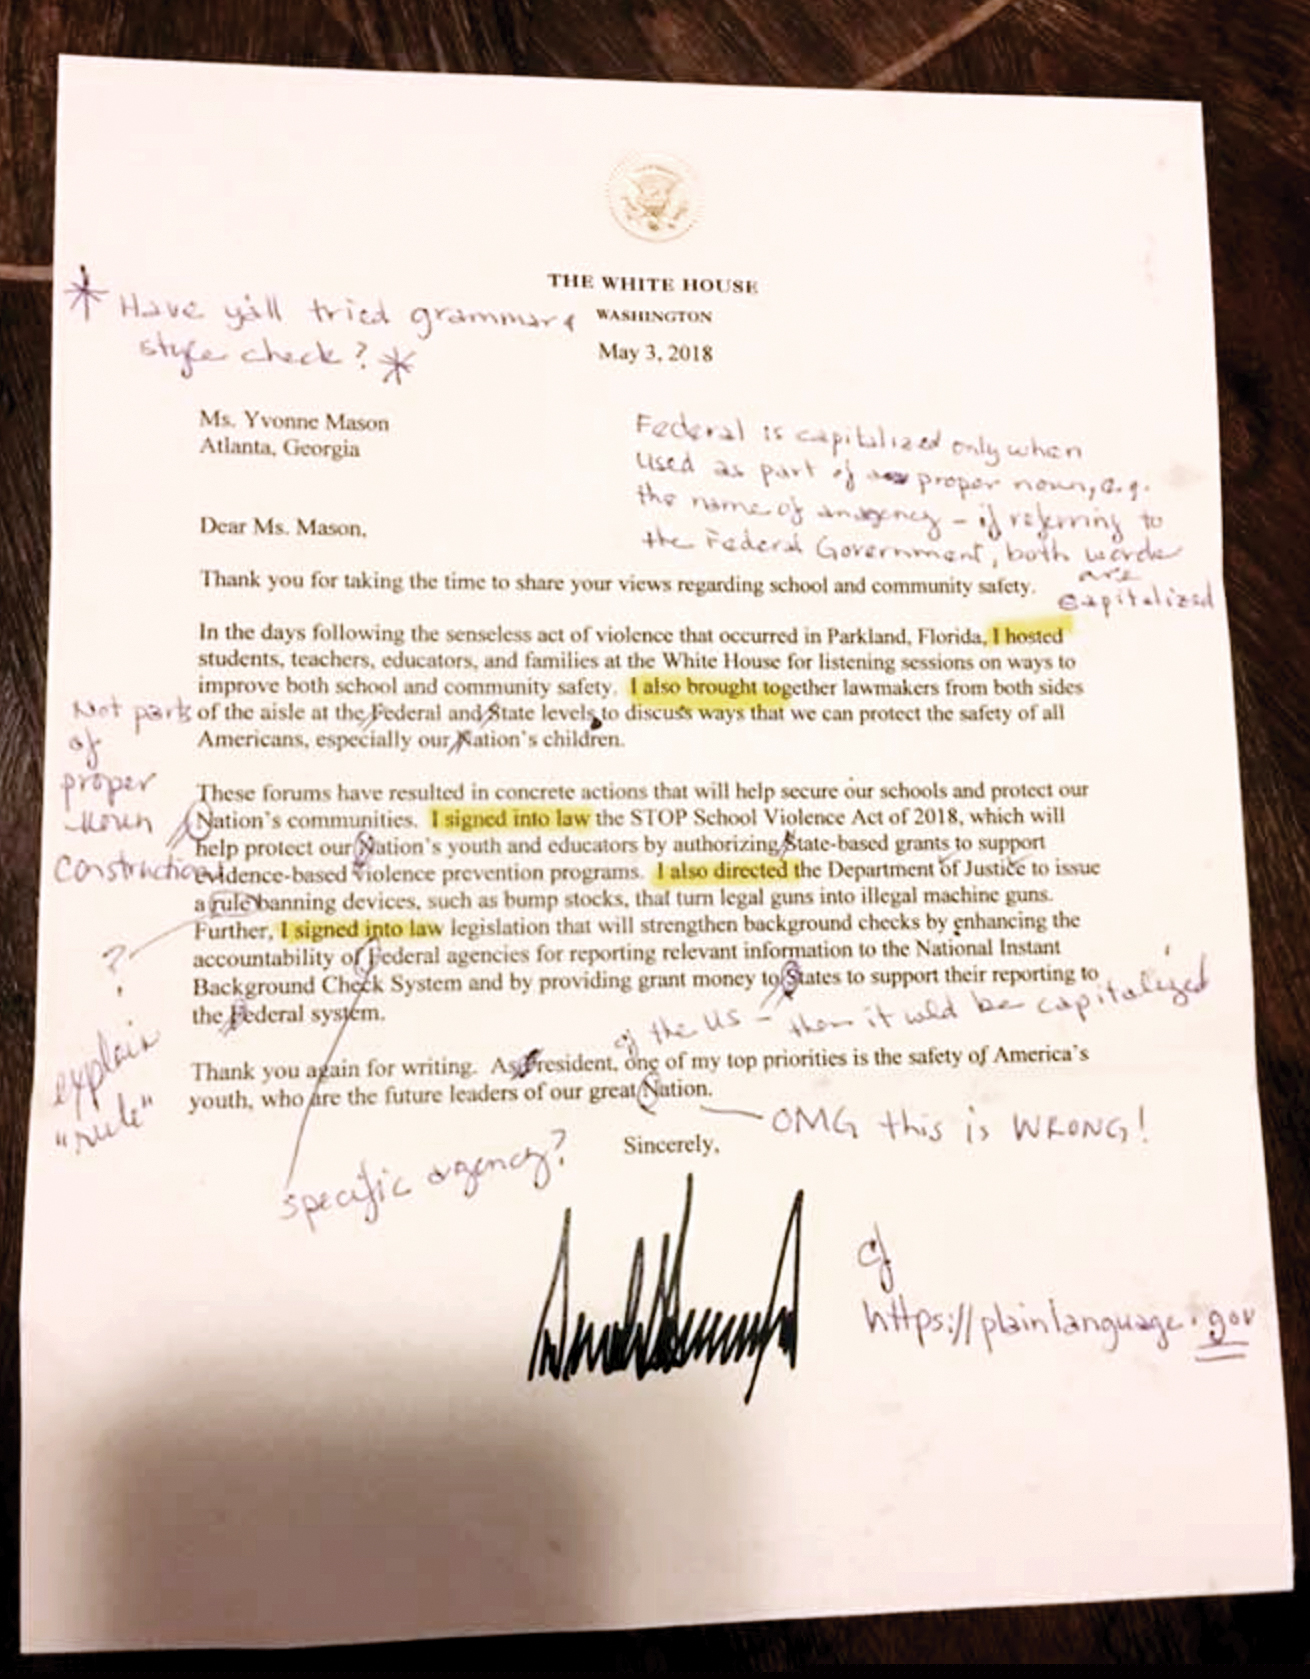 THE WHITE HOUSE
WASHINGTON
May 3, 2018
* Have y'all tried grammar &
style check? *
Ms. Yvonne Mason
Atlanta, Georgia
Federal is capitalized only when
used as part of proper noun, e.g.
the name of an agency – if referring to
the Federal Government, both words
are
capitalized
Dear Ms. Mason,
Thank you for taking the time to share your views regarding school and community safety.
In the days following the senseless act of violence that occurred in Parkland, Florida, I hosted
students, teachers, educators, and families at the White House for listening sessions on ways to
improve both school and community safety. I also brought together lawmakers from both sides
of the aisle at the Federal and State levels to discuss ways that we can protect the safety of all
Americans, especially our Nation's children.
Not parts
of
proper
noun
construction
These forums have resulted in concrete actions that will help secure our schools and protect our
Nation's communities. I signed into law the STOP School Violence Act of 2018, which will
help protect our Nation's youth and educators by authorizing State-based grants to support
evidence-based violence prevention programs. I also directed the Department of Justice to issue
a rule banning devices, such as bump stocks, that turn legal guns into illegal machine guns.
Further, I signed into law legislation that will strengthen background checks by enhancing the
accountability of Federal agencies for reporting relevant information to the National Instant
Background Check System and by providing grant money to States to support their reporting to
the Federal system.
?
explain
"rule"
of the US – then it wld be capitalized
Thank you again for writing. As President, one of my top priorities is the safety of America's
youth, who are the future leaders of our great Nation.
OMG this is WRONG!
Sincerely,
specific agency?
cf
https://plainlanguage.gov